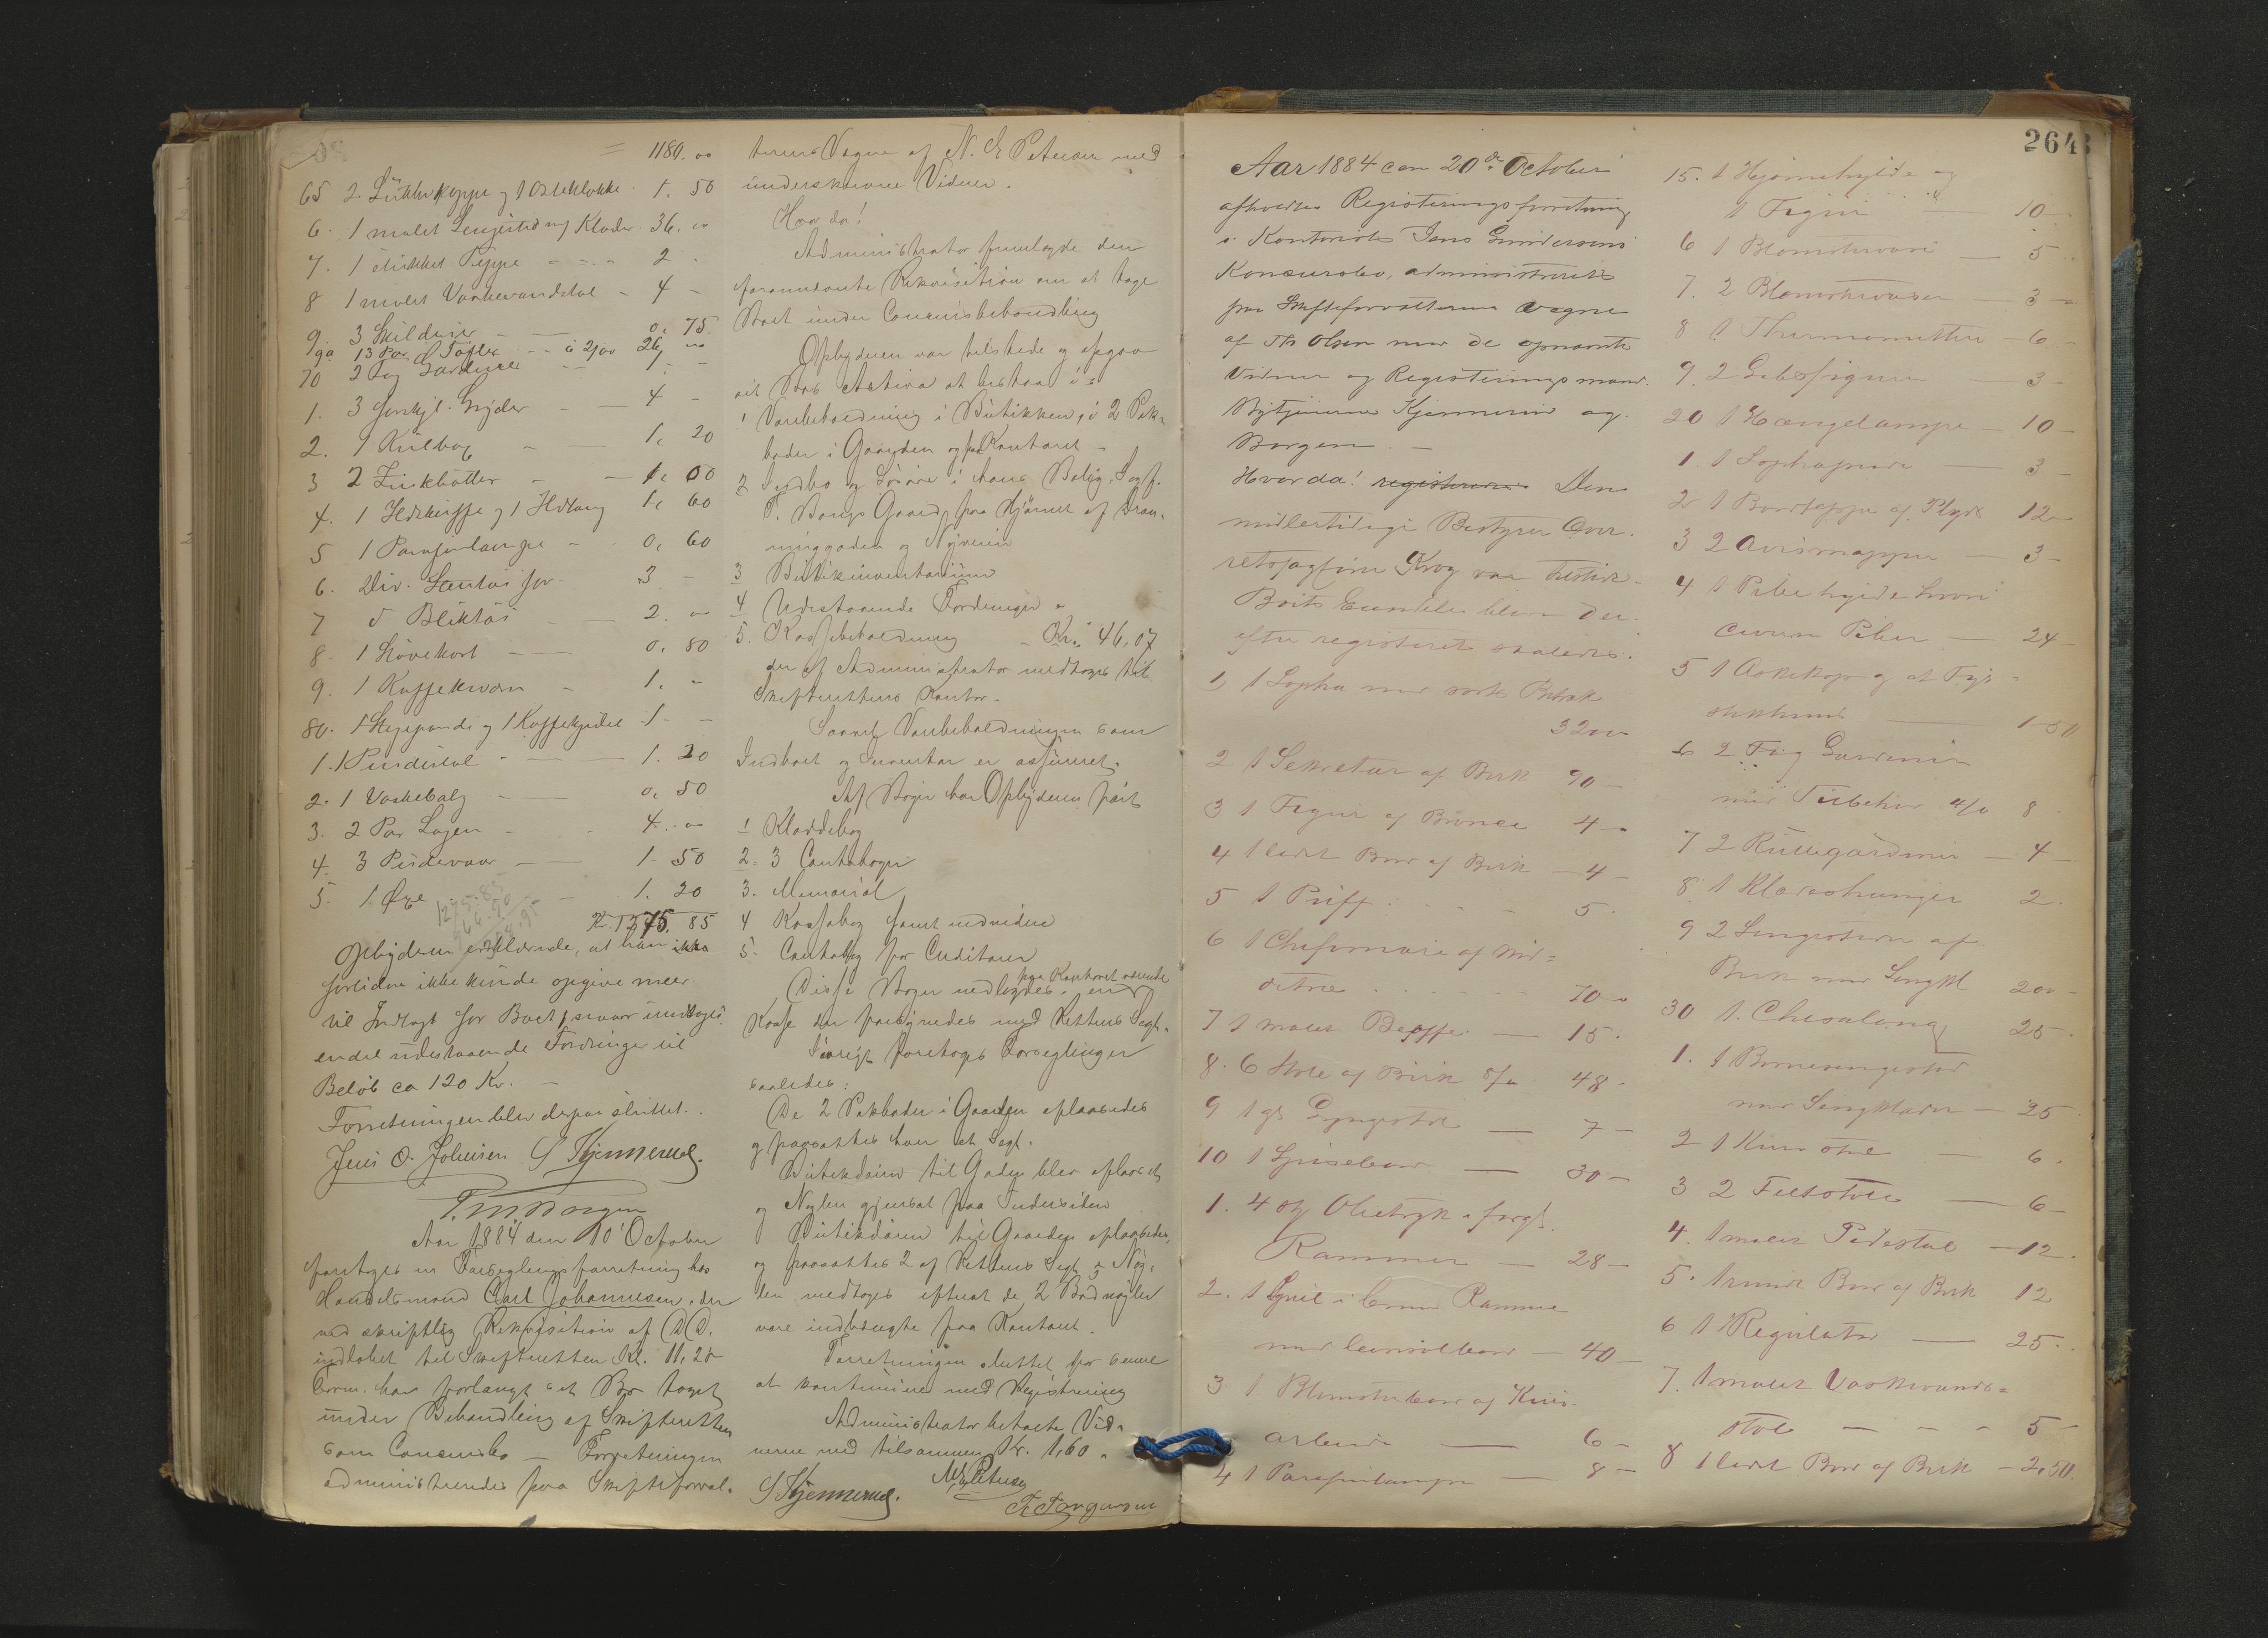 1180. 00
65 2 Sukkerkoppe og 1 Osteklokke 1. 50
6. 1 malet Sengested m/ Klæder 36. 00
7. 1 strikket Teppe 2 -
8 1 malet Vaskevandstol - 4 -
9. 3 Skilderier - 0. 75
9a 13 Par Tøfler - à 2/00 26, 00
70 2 Fag Gardiner 1, -
1. 3 forskjl. Gryder - 4 -
2. 1 Kulbox 1, 20
3 2 Zinkbøtter 1, 00
4. 1 Ildskuffe og 1 Ildtang 1, 60
5 1 Parafinlampe - 0, 60
6. Div. Stentøi for 3 -
7 d Bliktøi 2. 00
8 1 Løvekort 0, 80
9. 1 Kaffekværn - 1. -
80. 1 Stegepande og 1 Kaffekjedel 1 -
1. 1 Pindestol 1. 20
2. 1 Vaskebalg 0, 50
3. 2 Par Lagen 4. 00
4. 3 Pudevaar 1. 50
5. 1 Øxe 1. 20
Kr. 1275. 85
Opbyderen erklærede, at han ikke
fortiden ikke kunde opgive meer
til Indtægt for Boet, naar undtages
endel udestaaende Fordringer til
Beløb ca 120 Kr. -
Forretningen blev derpaa sluttet.
Jens O. Johnsen S Kjennerud.
T. M. Borgen
Aar 1884 den 10' October
foretoges en Forseglingsforretning hos
Handelsmand Carl Johannesen, der
ved skriftlig Rekvisition af DD.
indløbet til Skifteretten Kl. 11,20
Form. har forlangt sit Bo taget
under Behandling af Skifteretten
som Concursbo - Forretningen
administreredes paa Skifteforval-
terens Vegne af N. E Petersen med
underskrevne Vidner.
Hvor da!
Administrator fremlagde den
forannævnte Rekvisition om at tage
Boet under Concursbehandling
Opbyderen var tilstede og opgav
sit Boes Activa at bestaa i:
1 Varebeholdning i Butikken, i 2 Pak-
boder i Gaarden og paa Kontoret -
2 Indbo og Løsøre i hans Bolig Sagf.
T. Bangs Gaard, paa Hjørnet af Dron-
ninggaden og Nyveien
3 Butikinventarium
4 Udestaaende Fordringer
5. Kassebeholdning - Kr. 46,07
der af Administrator medtoges til
Skifterettens Kontor.
Saavel Varebeholdningen som
Indboet og Inventar er assureret.
Af Bøger har Opbyderen ført
1 Kladdebog
2. 3 Contobøger
3. Memorial
4 Kassabog
5. Contobog for Creditorer
paa Kontoret værende
Disse Bøger nedlagdes i en
Kasse der forsynedes med Rettens Segl.
Iøvrigt foretoges Forseglinger
saaledes:
De 2 Pakboder i Gaarden aflaasedes
og paasattes hver et Segl.
Butikdøren til Gaden blev aflaaset
og Nøglen gjensat paa Indersiden
Butikdøren til Gaarden aflaasedes,
og paasattes 2 af Rettens Segl - Nøg-
len medtoges efterat de 2 Bodnøgler
vare indbragte paa Kontoret.
Forretningen sluttet for senere
at kontinuere med Registrering
Administrator betalte Vid-
nerne med tilsammen Kr. 1,60.
S Kjennerud. N E Petersen
264
Aar 1884 den 20de October
afholdtes Registreringsforretning
i Kontorist Jens Gundersens
Konkursbo, administreret
paa Skifteforvalterens vegne
af Th Olsen med de opnævnte
Vidner og Registreringsmænd
Bytjenerne Kjennerud og
Borgen. -
Hvorda! registreredes Den
midlertidige Bestyrer Over-
retssagfører Krog var tilstede -
Boets Eiendele bleve der-
efter registreret saaledes:
1, 1 Sopha med sort Betræk
32 00
2 1 Sekretær af Birk 90 -
3 1 Figur af Bronce 4 -
4 1 lidet Bord af Birk - 4 -
5 1 Puff 5 -
6 1 Chefoniere af
70 -
7 1 malet Beøffe - 15.
8. 6 Stole af Birk 8/- 48 -
9 1 gl Gyngestol - 7 -
10 1 Spisebord - 30 -
1. 4 stk Olietryk i forgl.
Rammer - 28 -
2. 1 Speil i brun Ramme
med Consolbord - 40 -
3 1 Blomsterbord af Kurv-
arbeide - 6 -
4 1 Parafinlampe - 8 -
15. 1 Hjørnehylde og
1 Figur 10 -
6 1 Blomstervase - 5
7. 2 Blomstervaser 3 -
8 1 Thermometter - 6 -
9. 2 Gibsfigurer - 3 -
20 1 Hængelampe - 10 -
1. 1 Sophapude - 3 -
2 1 Bordteppe af Plyds 12 -
3 2 Avismapper - 3 -
4 1 Pibehylde hvori
Piber - 24 -
5 1 Askekop og et Fyr-
- 1 50
6 2 Fag Gardiner
med Tilbehør 4/- 8 -
7 2 Rullegardiner - 4 -
8. 1 Klædeshænger 2.
9 2 Sengesteder af
Birk med Sengkl 200 -
30 1 Chesalong 25 -
1. 1 Børnesengested
med Sengklæder - 25
2 1 Kurvstol - 6.
3 2 Feltstole - 6 -
4. 1 malet Pidestal - 12.
5. 1 rundt Bord af Birk 12
6 1 Regulator - 25.
7. 1 malet Vaskevands-
stol - 5 -
8 1 lidet Bord af Birk - 2,50.